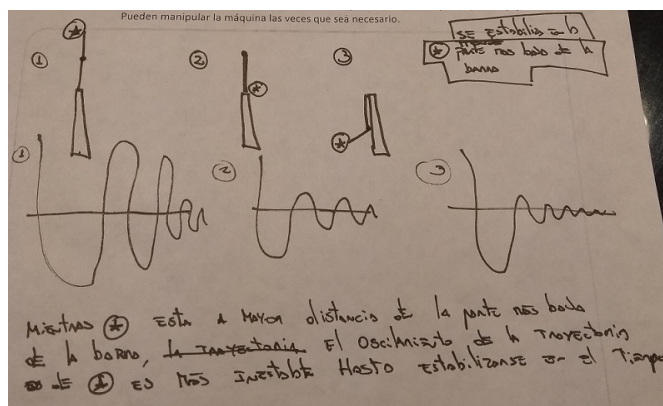 Pueden manipular la máquina las veces que sea necesario.
SE Estabiliza en la
parte mas baja de la
barra
1
2
3
1
2
3
Mientras * ESTA A MAYOR distancia de la parte mas baja
de la barra, la TRAYECTORIA El Oscilamiento de la TRAYECTORIA
de * ES MAS INESTABLE Hasta Estabilizarse en el Tiempo